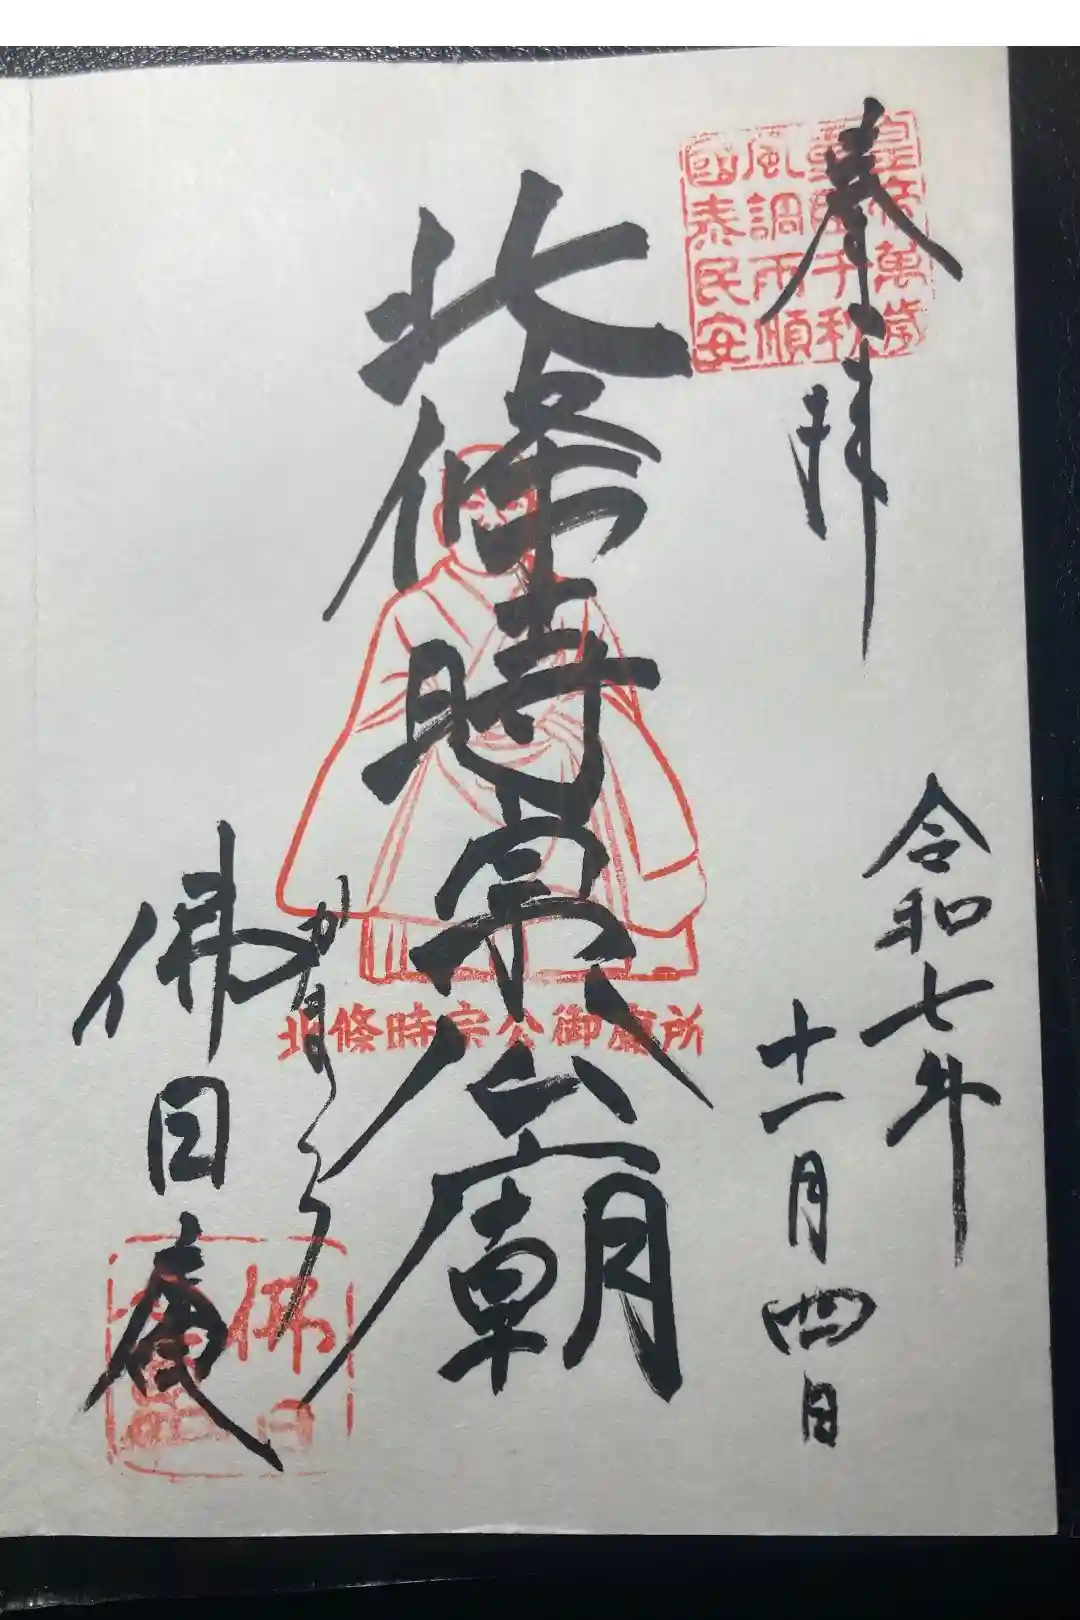 奉拝
皇帝萬歳
重臣千秋
風調雨順
國泰民安
令和七年
十一月四日
北條時宗公廟
北條時宗公御廟所
かまくら
佛日庵
佛日